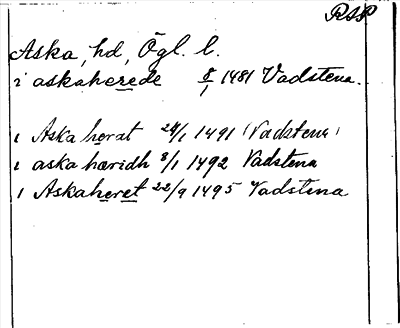 RSP
Aska, hd, Ögl. l.
i askaherede 8/1 1481 Vadstena.
i Aska herat 24/1 1491 (Vadstena)
i aska hæridh 8/1 1492 Vadstena
i Askaheret 22/9 1495 Vadstena